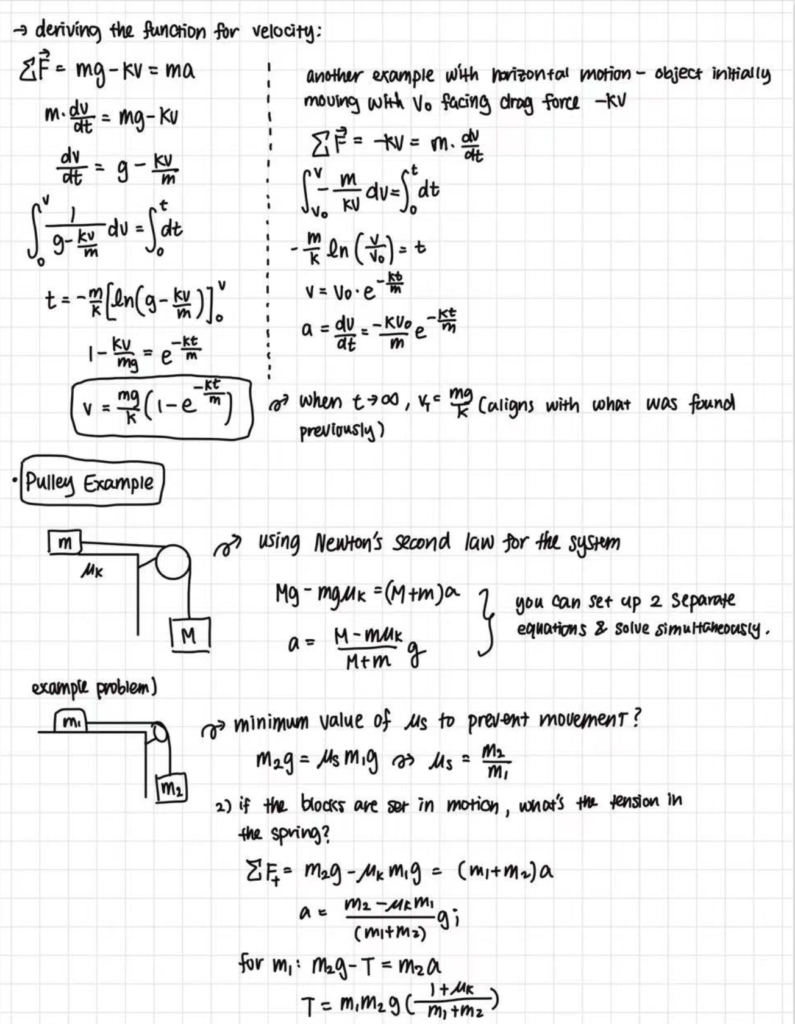 → deriving the function for velocity:
ΣF⃗ = mg - kv = ma
m · dv/dt = mg - kv
dv/dt = g - kv/m
∫₀ᵛ 1/(g - kv/m) dv = ∫₀ᵗ dt
t = -m/k [ln(g - kv/m)]₀ᵛ
1 - kv/mg = e^(-kt/m)
v = mg/k (1 - e^(-kt/m))
another example with horizontal motion - object initially
moving with v₀ facing drag force -kv
ΣF⃗ = -kv = m · dv/dt
∫_v₀^v - m/kv dv = ∫₀ᵗ dt
-m/k ln(v/v₀) = t
v = v₀ · e^(-kt/m)
a = dv/dt = -kv₀/m e^(-kt/m)
when t→∞, v_T = mg/k (aligns with what was found
previously)
• Pulley Example
m
μk
M
using Newton's second law for the system
Mg - mgμk = (M+m)a
a = (M - mμk)/(M+m) g
you can set up 2 separate
equations & solve simultaneously.
example problem)
m₁
m₂
minimum value of μs to prevent movement?
m₂g = μs m₁g → μs = m₂/m₁
2) if the blocks are set in motion, what's the tension in
the spring?
ΣF₊ = m₂g - μk m₁g = (m₁+m₂)a
a = (m₂ - μk m₁)/(m₁+m₂) g;
for m₁: m₂g - T = m₂a
T = m₁m₂g ((1+μk)/(m₁+m₂))